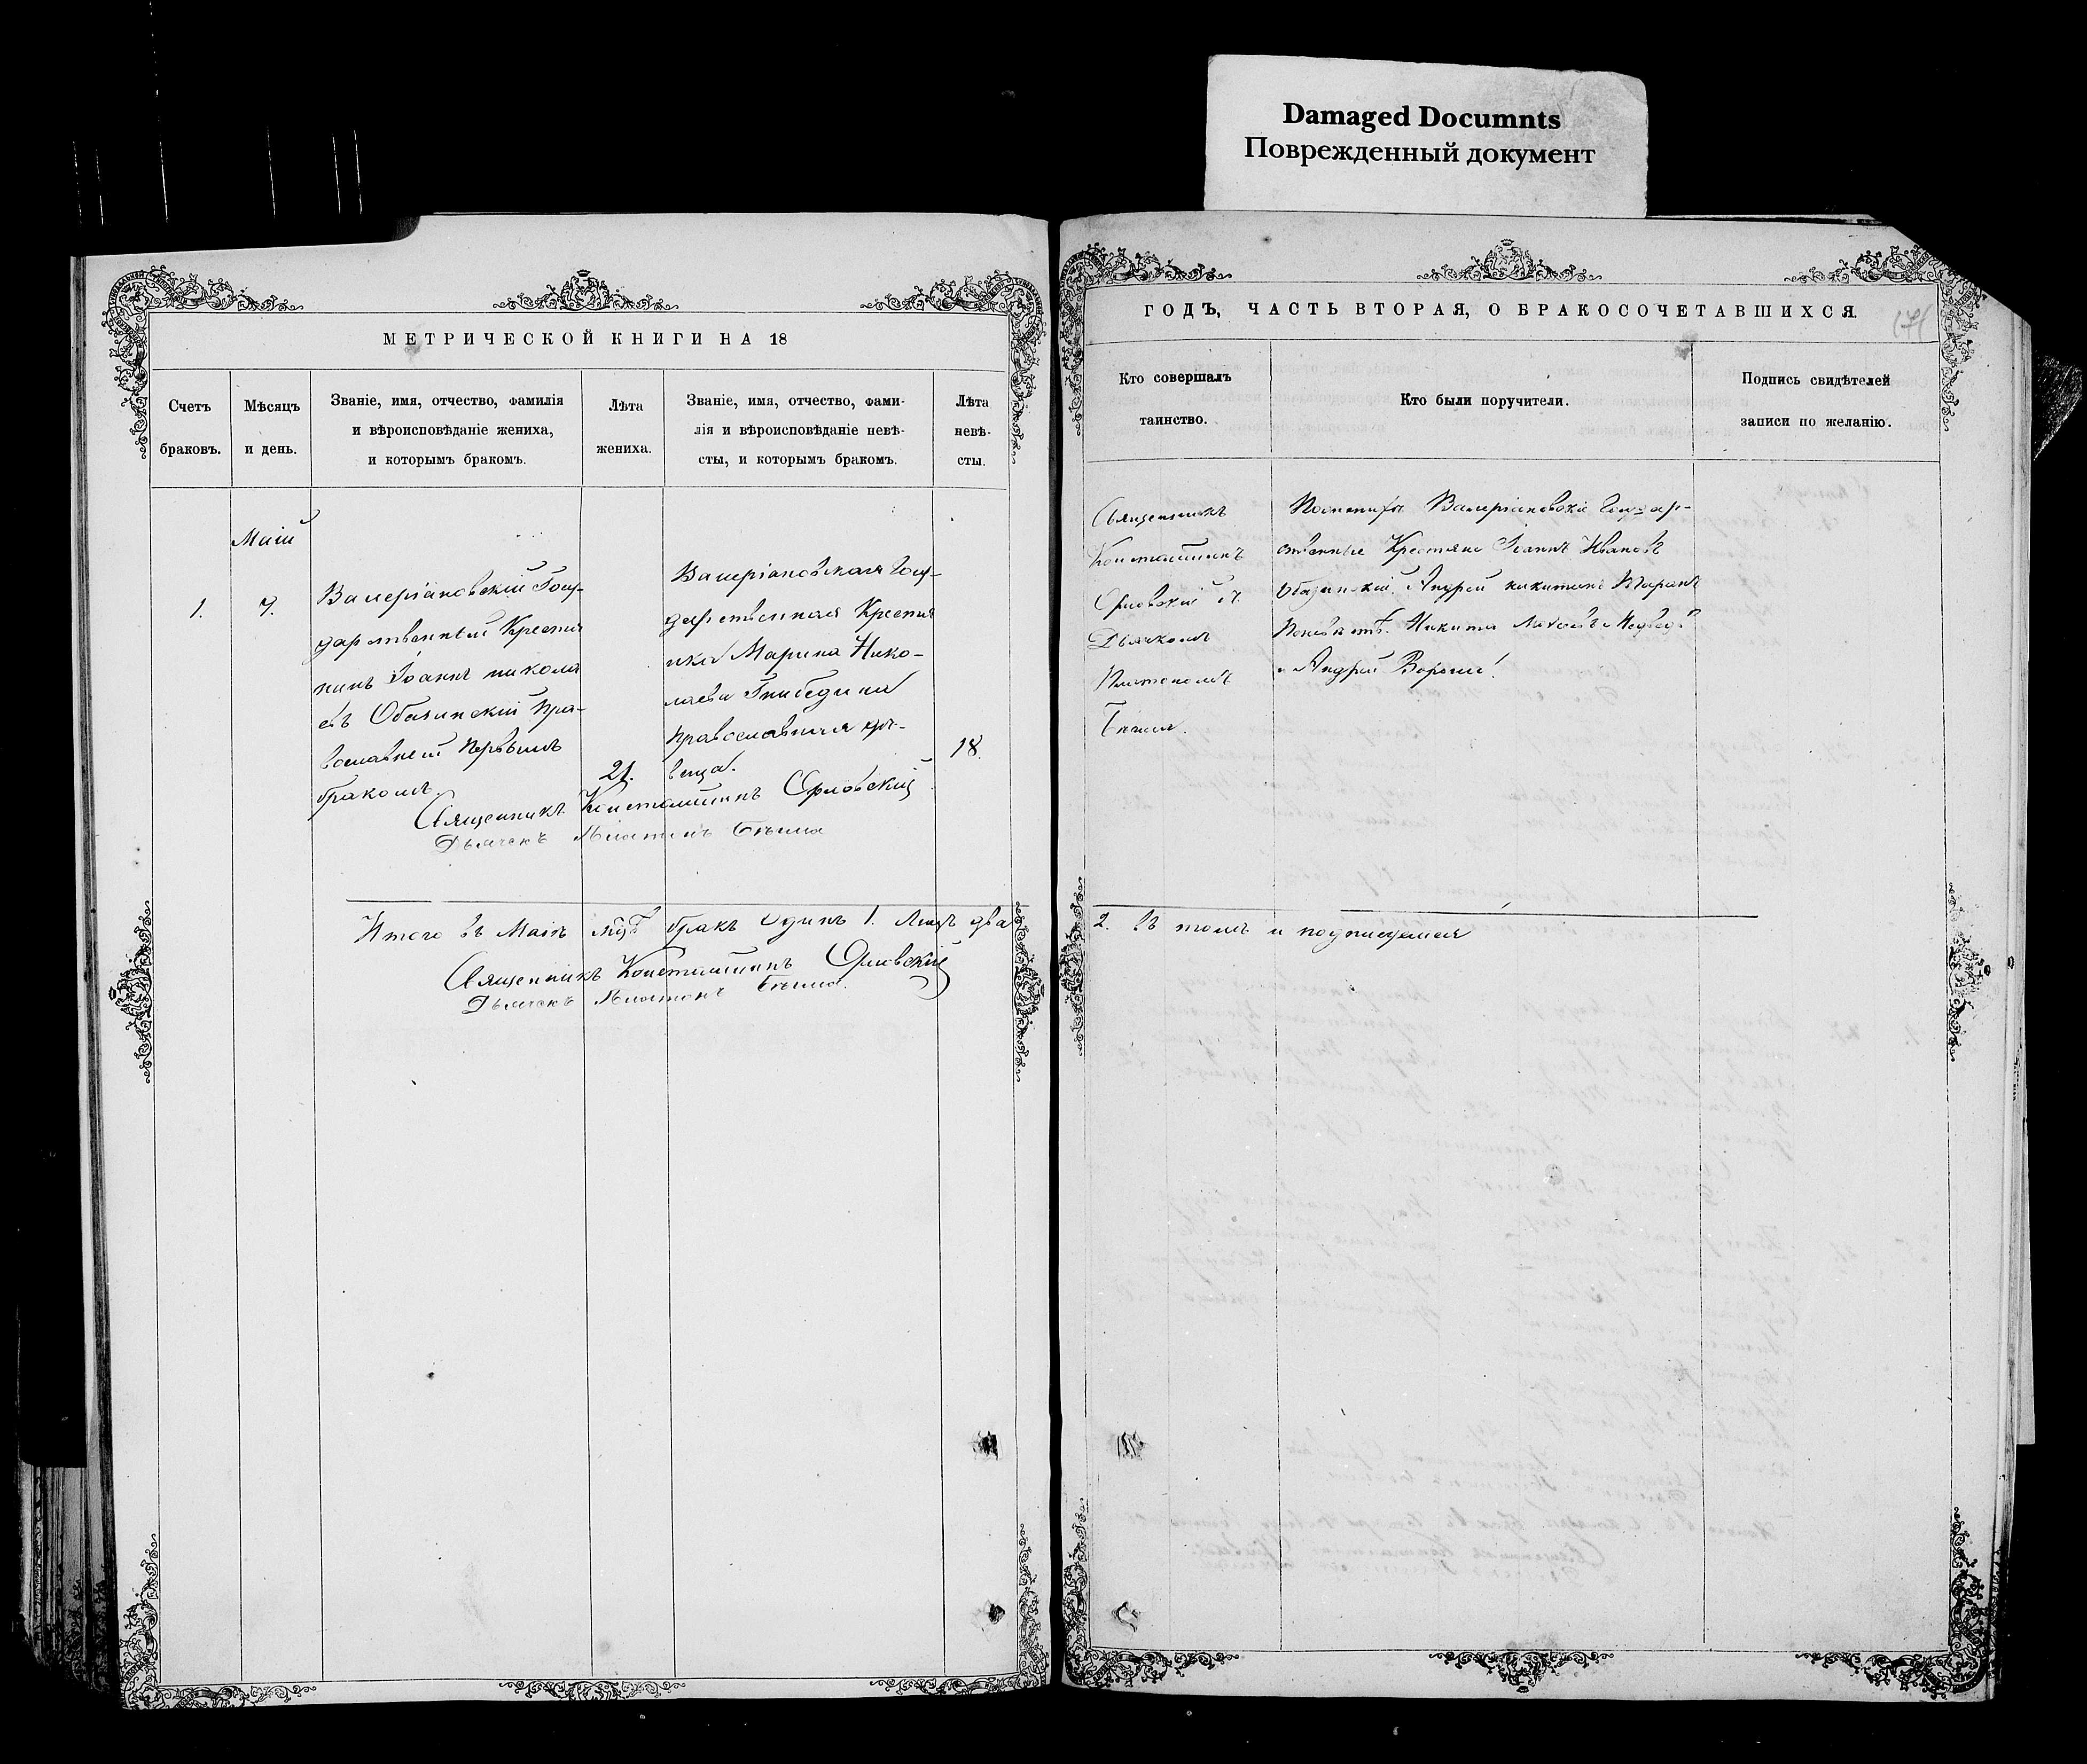 Damaged Documnts
Поврежденный документ
МЕТРИЧЕСКОЙ КНИГИ НА 18
Счетъ браковъ.
Мѣсяцъ и день.
Званіе, имя, отчество, фамилія
и вѣроисповѣданіе жениха,
и которымъ бракомъ.
Лѣта жениха.
Званіе, имя, отчество, фами-
лія и вѣроисповѣданіе невѣ-
сты, и которымъ бракомъ.
Лѣта
невѣ-
сты.
Маій
1.
7.
Валеріановскій Госу-
дарственный Крестья
нинъ Іоаннъ Никола
евъ Обазинскій Пра-
вославный первымъ
бракомъ.
21.
Валеріановская Госу-
дарственная Крестья
нка Марина Нико-
лаева Гнибедина
православная
18.
Священникъ Константинъ Орловскій
Дьячекъ Платонъ
Итого въ Маіѣ мцѣ бракъ одинъ 1. Лицъ два
Священникъ Константинъ Орловскій
Дьячекъ Платонъ
ГОДЪ, ЧАСТЬ ВТОРАЯ, О БРАКОСОЧЕТАВШИХСЯ.
Кто совершалъ
таинство.
Кто были поручители.
Подпись свидѣтелей
записи по желанію.
Священникъ
Константинъ
Орловскій съ
Дьячкомъ
Платономъ
Валеріановскіе Государ-
ственные Крестьяне Іоаннъ Ивановъ
Обазинскій, Андрей Никитинъ
Никита Медведь
и Андрей
2. въ томъ и подписуемся